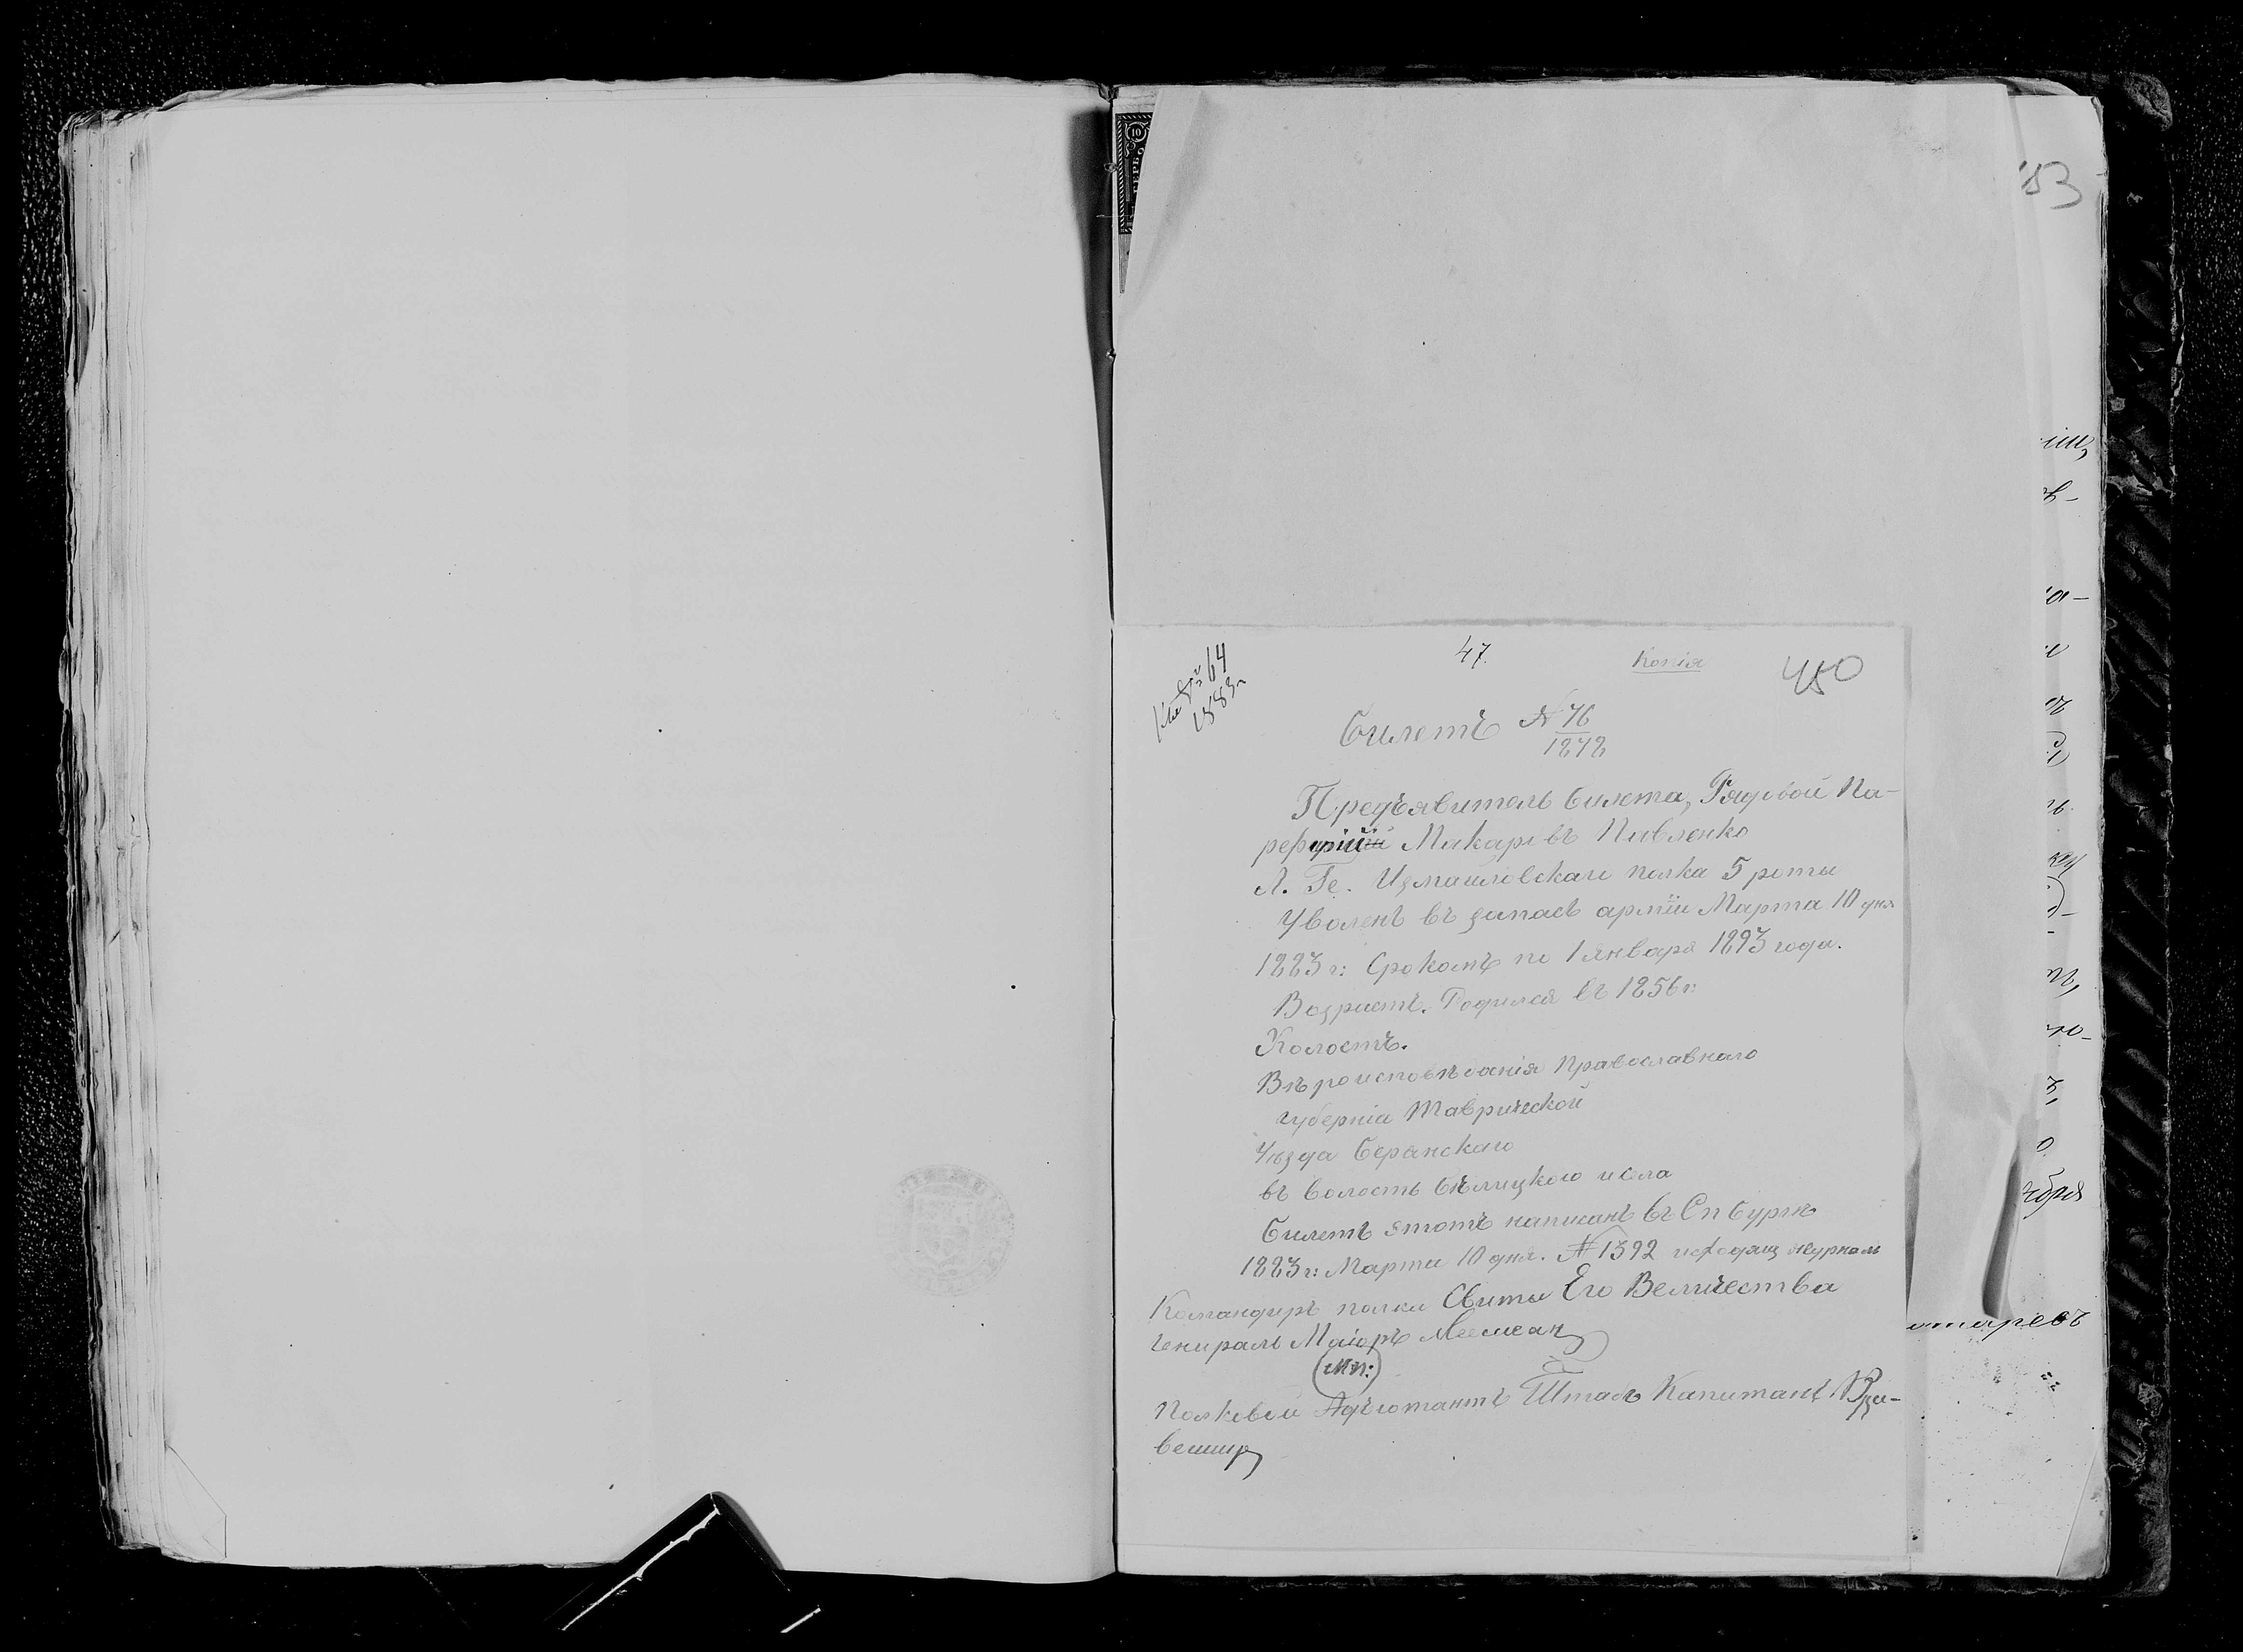 10
ГЕРБО
153
47.
Копія
450
64
1883 г
Билетъ № 76
1272
Предъявитель билета, Рядовой Па-
рефирій Макаровъ Павленко
Л. Гв. Измаиловскаго полка 5 роты
Уволенъ въ запасъ арміи Марта 10 дня
1883 г: Срокомъ по 1 Января 1893 года.
Возрастъ. Родился въ 1856 г:
Холостъ.
Вѣроисповѣданія Православнаго
губерніи Таврической
Уѣзда Берянскаго
въ волость Бѣлицкого исела
Билетъ этотъ написанъ въ Сп бургѣ
1883 г: Марта 10 дня. № 1392 исходящ журнам
Командиръ полка Свиты Его Величества
генераль Маіоръ
МП:
Полковой Адъютантъ Штабъ Капитанъ